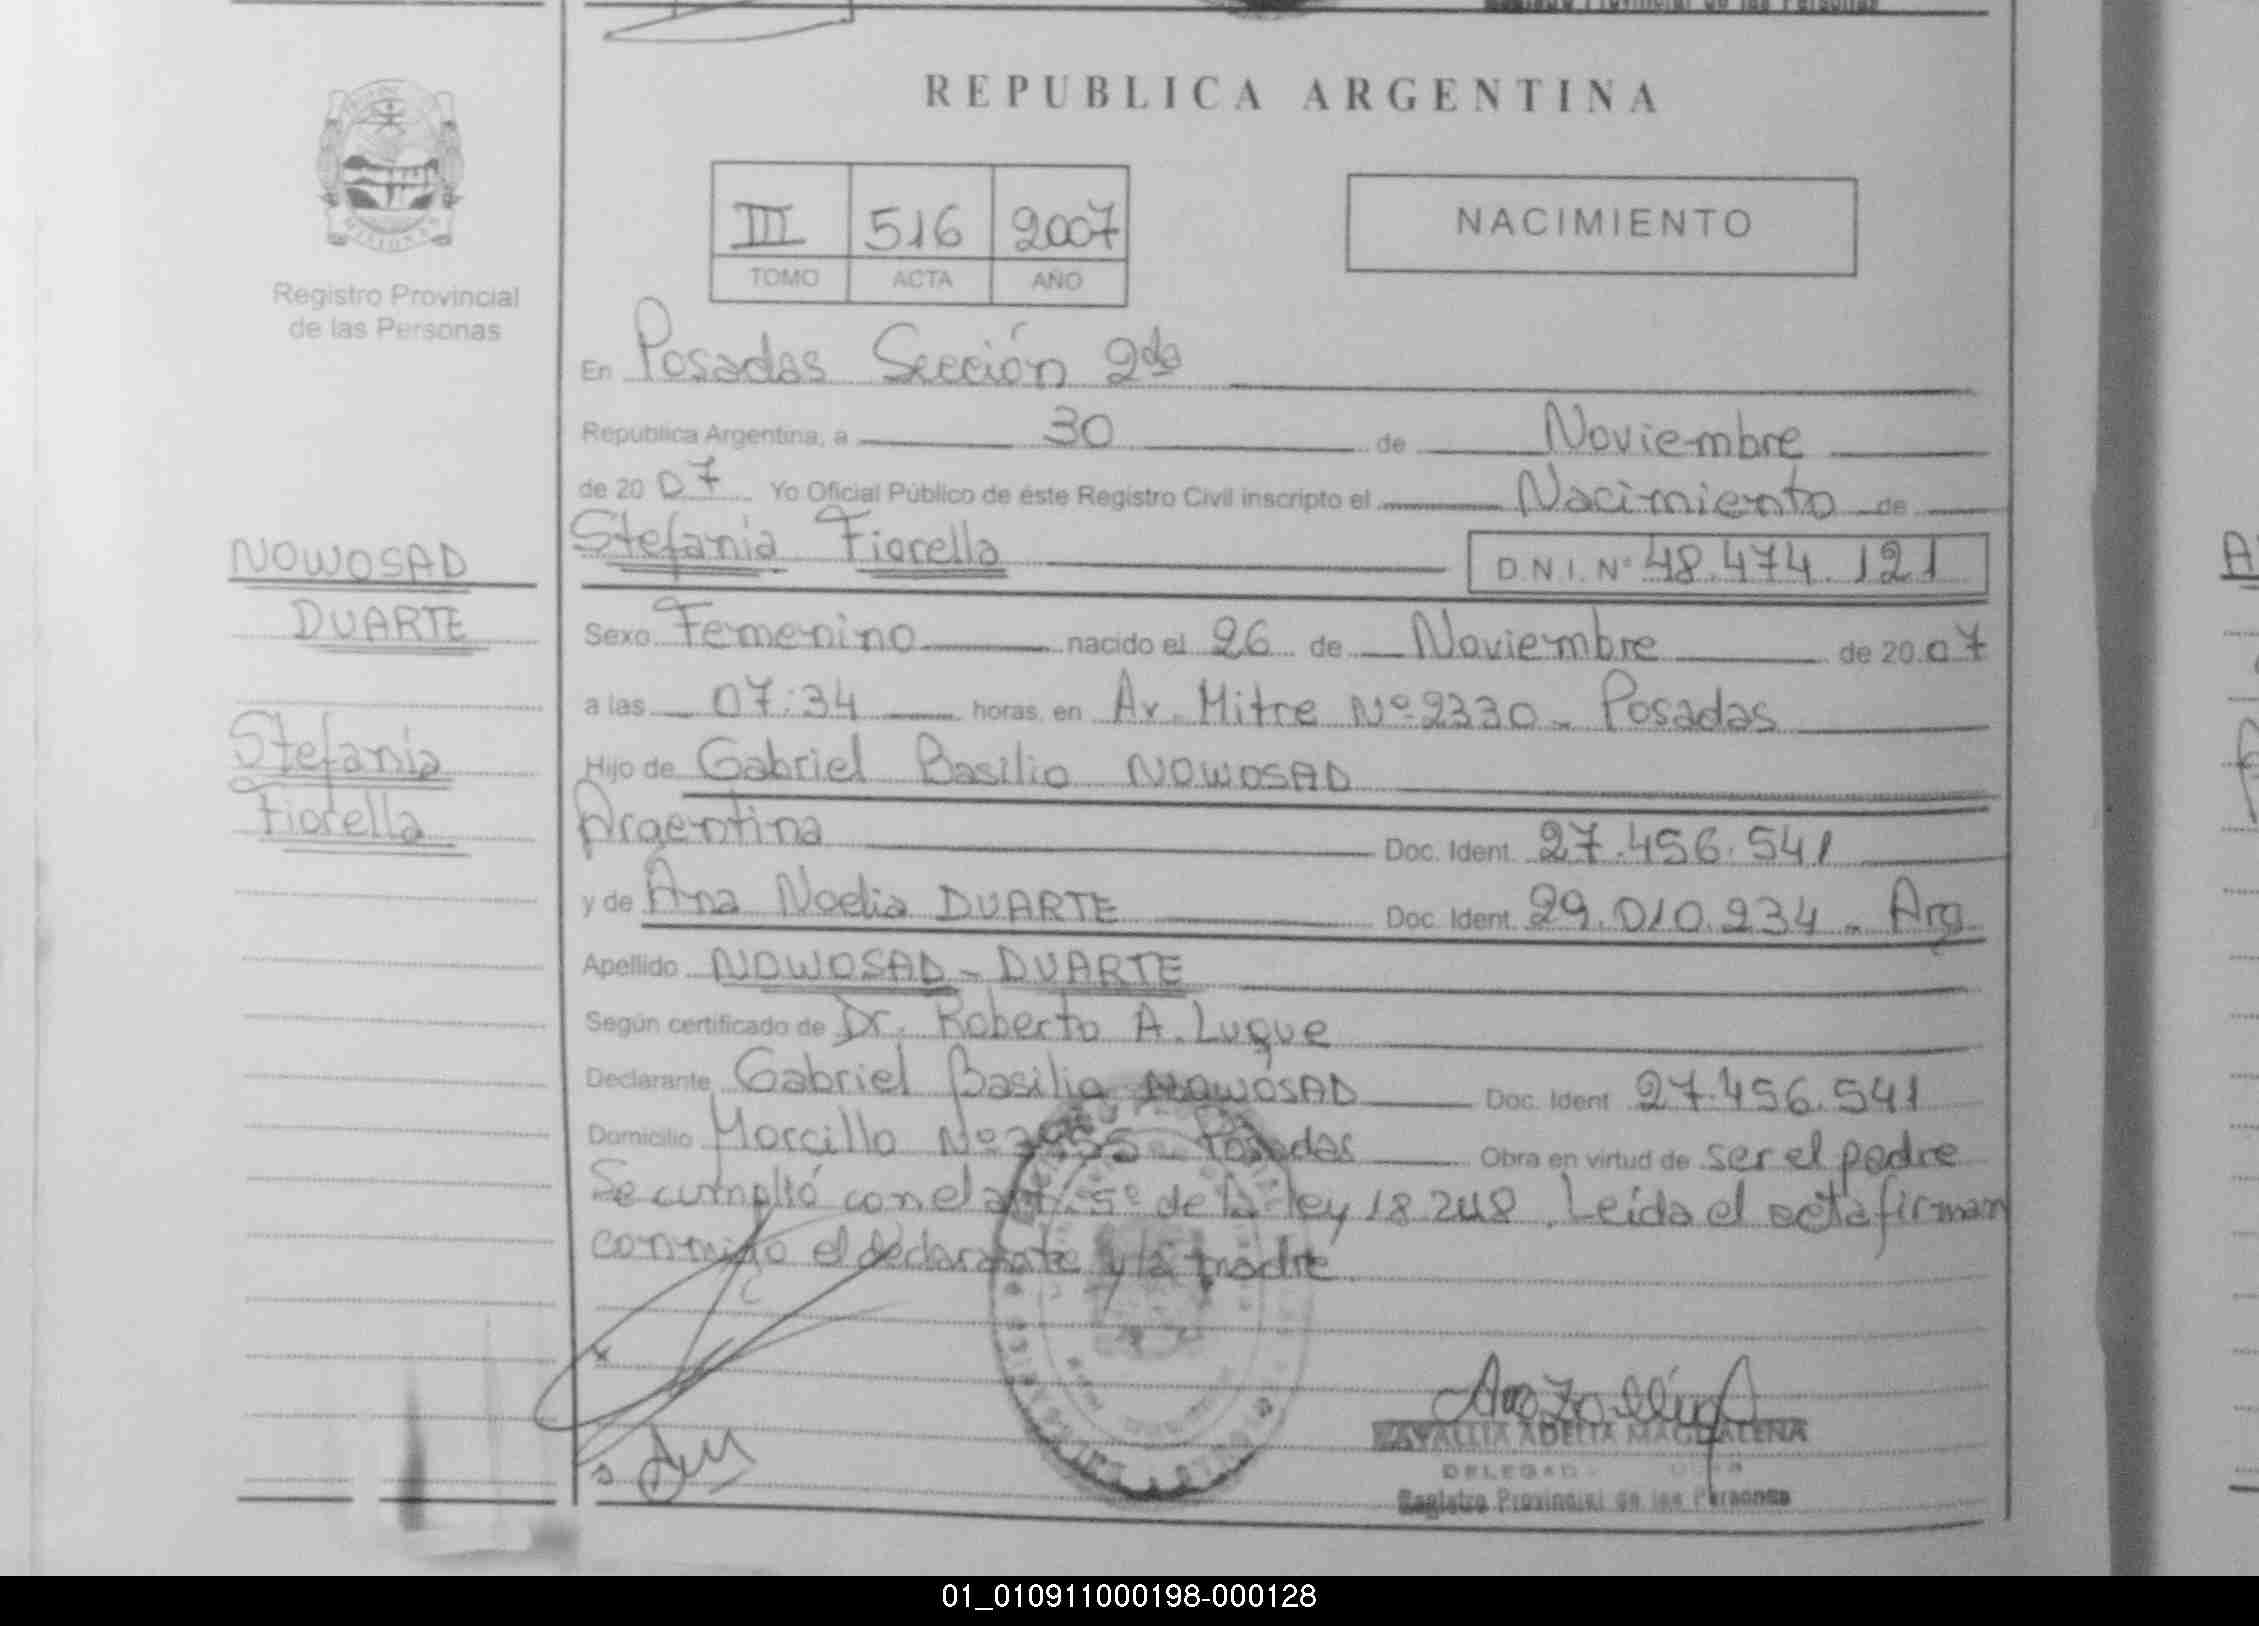 REPUBLICA ARGENTINA
III 516 2007
TOMO ACTA AÑO
NACIMIENTO
MISIONES
Registro Provincial
de las Personas
NOWOSAD
DUARTE
Stefanía
Fiorella
En Posadas Sección 2da
Republica Argentina, a 30 de Noviembre
de 20 07 Yo Oficial Público de éste Registro Civil inscripto el Nacimiento de
Stefanía Fiorella D.N.I. Nº 48.474.121
Sexo Femenino nacido el 26 de Noviembre de 20 07
a las 07:34 horas, en Av. Mitre Nº 2330 - Posadas
Hijo de Gabriel Basilio NOWOSAD
Argentina Doc. Ident. 27.456.541
y de Ana Noelia DUARTE Doc. Ident. 29.010.234 - Arg
Apellido NOWOSAD - DUARTE
Según certificado de Dr. Roberto A. Luque
Declarante Gabriel Basilio NOWOSAD Doc. Ident 27.456.541
Domicilio Morcillo Nº Posadas Obra en virtud de ser el padre
Se cumplió con el art. 5º de la ley 18.248. Leída el acta firman
conmigo el declarante y la madre
ADELIA MAGDALENA
Registro Provincial de las Personas
01_010911000198-000128